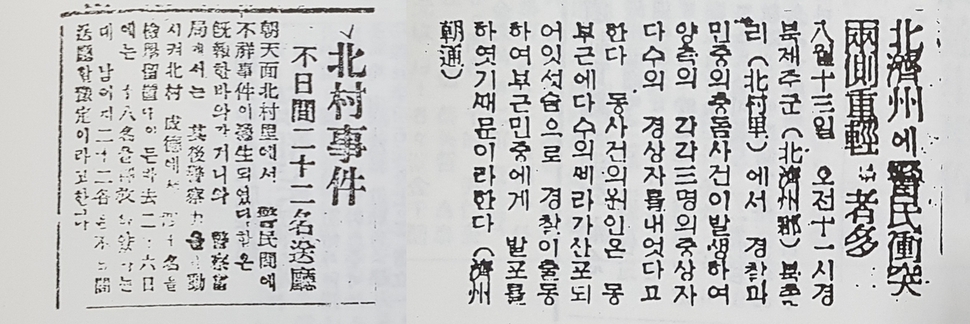 北濟州에警民衝突
兩側重輕 者多
八월十三일 오전十一시경
북제주군(北濟州郡) 북촌
리(北村里)에서 경찰과
민중의충돌사건이발생하여
양측의 각각三명의중상자
다수의 경상자를내엇다고
한다 동사건의원인은 동
부근에다수의삐라가산포되
어잇섯슴으로 경찰이출동
하여부근민중에게 발포를
하엿기때문이라한다 (濟州
朝通)
北村事件
不日間二十二名送廳
朝天面北村里에서 警民間에
不祥事件이發生되엿다함은
旣報한바와가거니와 警察當
局에서는 其後警察力을動
시켜北村 咸德에서 名을
檢擧留置中이든바去二十六日
에는 十六名을釋放
데 남어지二十二名은不日間
送廳할豫定이라고한다